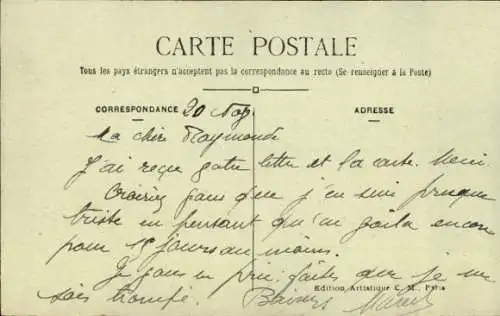 CARTE POSTALE
Tous les pays étrangers n'acceptent pas la correspondance au recto (Se renseigner à la Poste)
CORRESPONDANCE
ADRESSE
20 Nov
Ma chère Raymonde
J'ai reçu votre lettre et la carte. Merci.
vous que j'en suis presque
triste en pensant qu'en voilà encore
pour 15 jours au moins.
Je vous en prie faites que je me
sois trompé. Baisers Marcel
Edition Artistique C. M., Paris